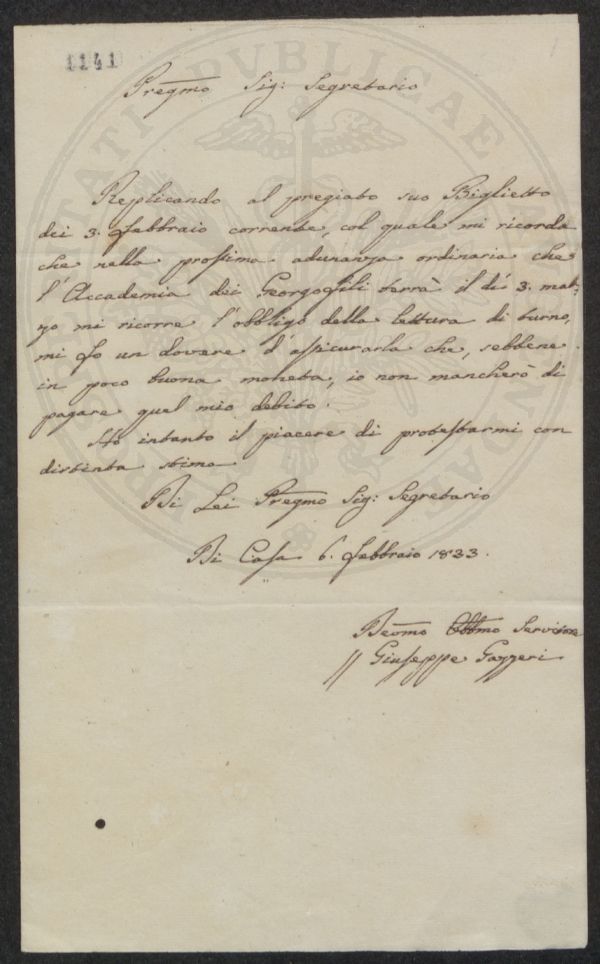 1141
Pregmo Sig: Segretario
Replicando al pregiato suo Biglietto
dei 3. febbraio corrente, col quale mi ricorda
che nella prossima adunanza ordinaria che
l'Accademia dei Georgofili terrà il dì 3. mar:
zo mi ricorre l'obbligo della lettura di turno,
mi fo un dovere d'assicurarla che, sebbene
in poco buona moneta, io non mancherò di
pagare quel mio debito.
Ho intanto il piacere di protestarmi con
distinta stima
Di Lei Pregmo Sig: Segretario
Di Casa 6. febbraio 1833.
Devmo Obbmo Servitore
Giuseppe Gazzeri